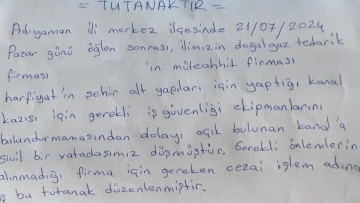 = TUTANAKTIR =
Adıyaman ili merkez ilçesinde 21/07/2024
Pazar günü öğlen sonrası, ilimizin doğalgaz tedarik
firması 'ın müteahhik firması
harfiyat'ın şehir alt yapıları için yaptığı kanal
kazısı için gerekli iş güvenliği ekipmanlarını
bulundurmamasından dolayı açık bulunan kanal'a
sivil bir vatadaşımız düşmüştür. Gerekli önlemlerin
alınmadığı firma için gereken cezai işlem adına
iş bu tutanak düzenlenmiştir.